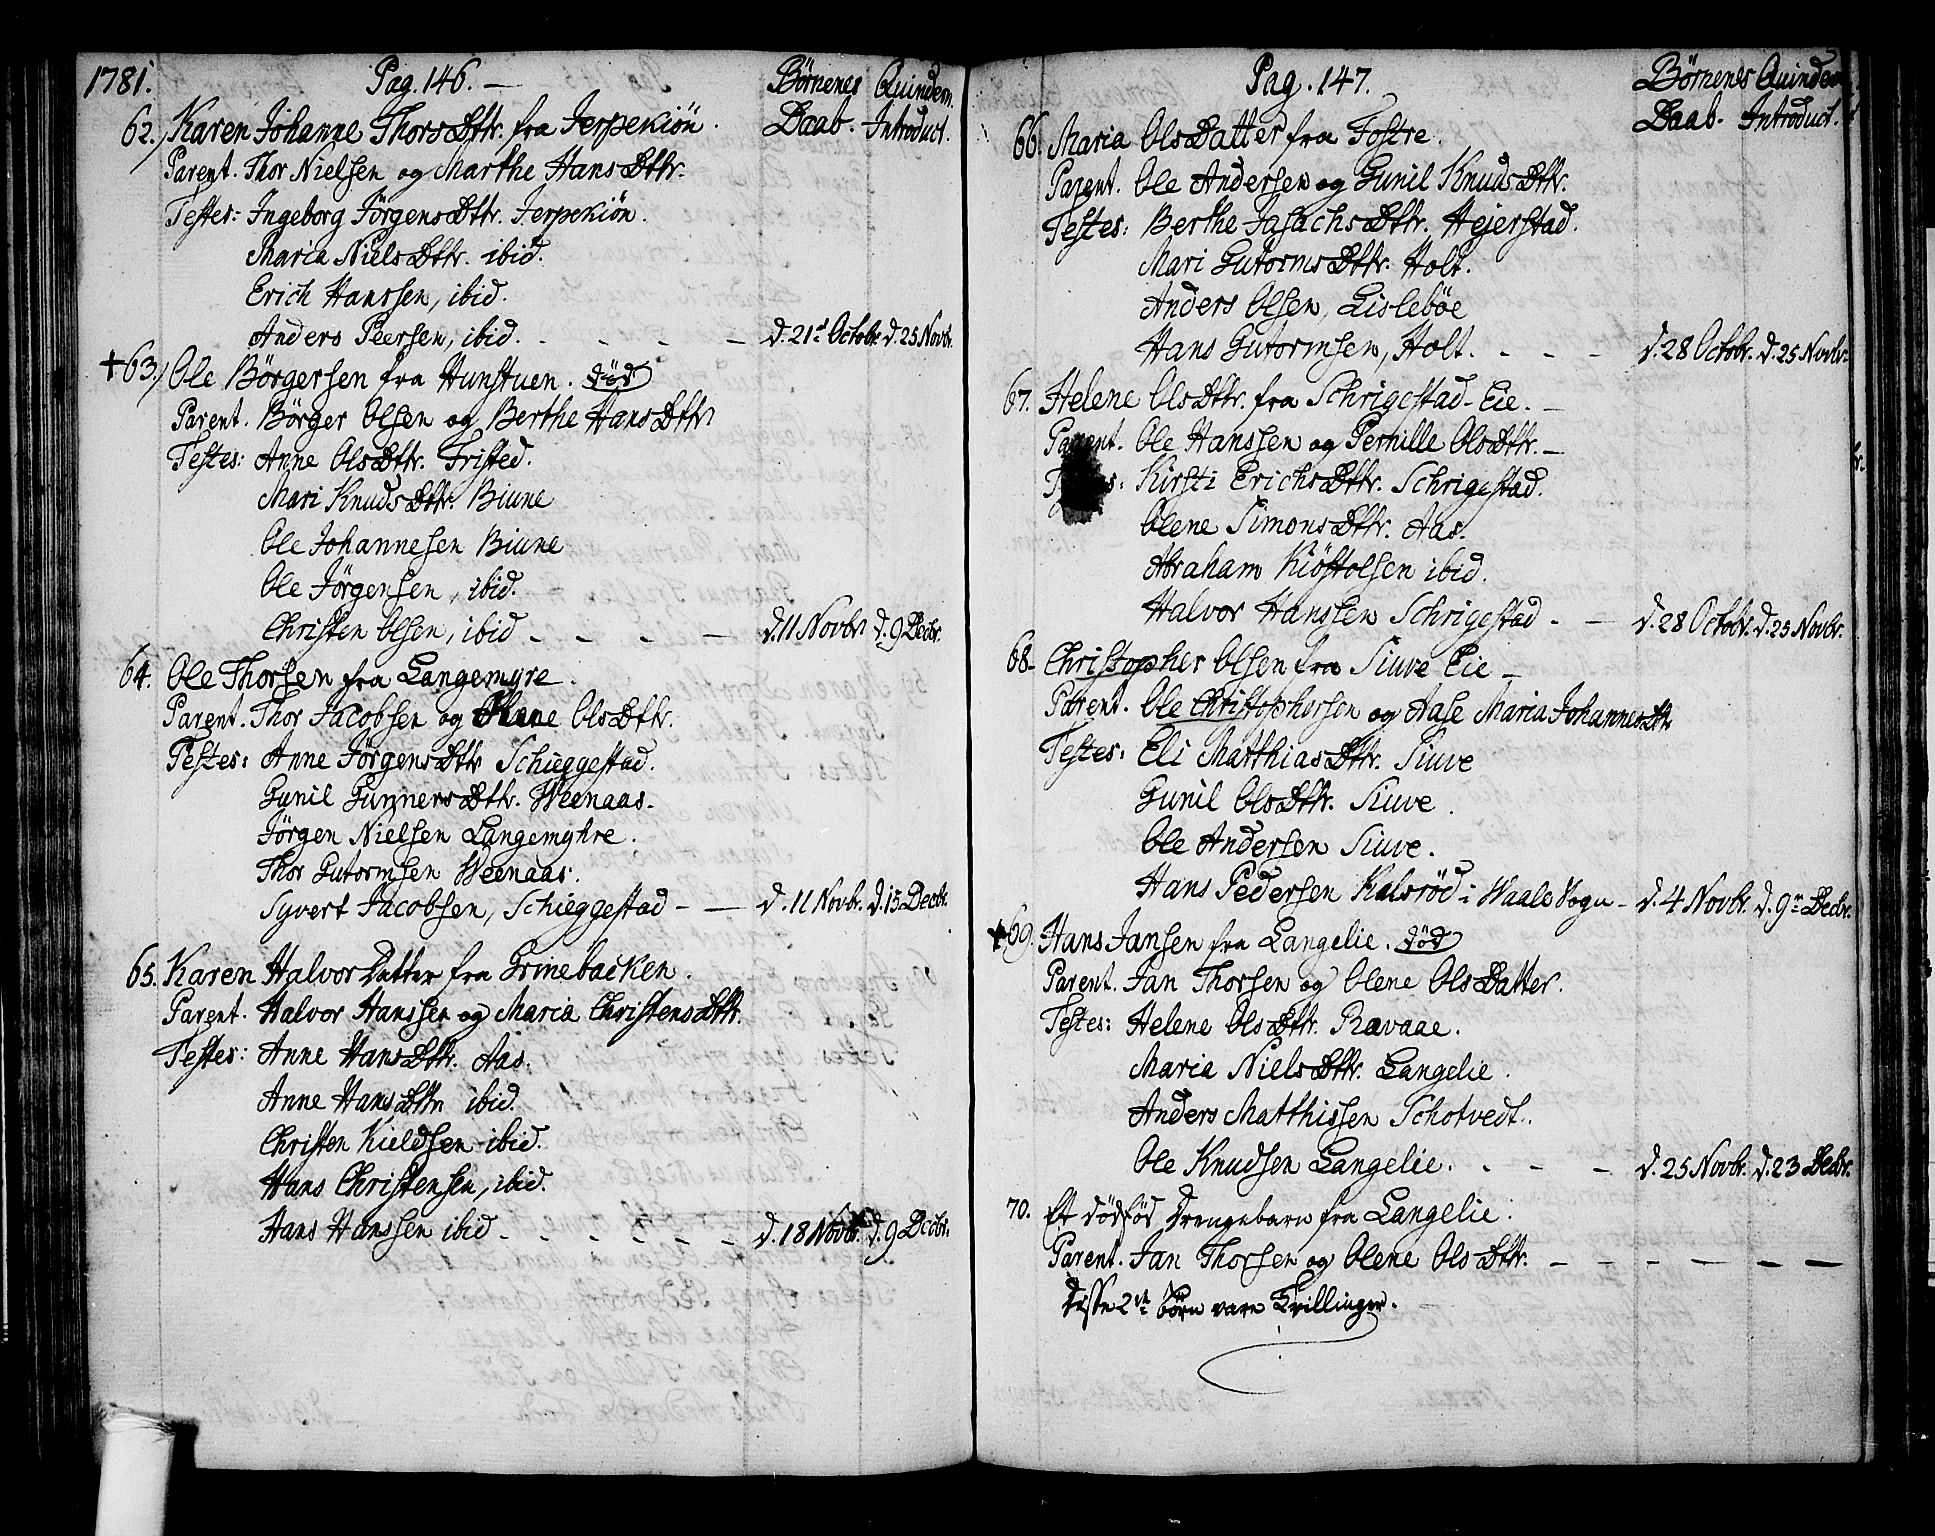 1781.
Pag. 146. —
Börnenes Quindern.
Daab. Introduct.
62.) Karen Johanne Thors Dttr. fra Jerpekiön.
Parent. Thor Nielsen og Marthe Hans Dttr.
Testes: Ingeborg Jörgens Dttr. Jerpekiön.
Maria Niels Dttr. ibid.
Erich Hanssen, ibid.
Anders Peersen, ibid. - - - - d. 21d Octobr. d. 25 Novbr.
+63.) Ole Börgersen fra Hunstuen. död
Parent. Börger Olsen og Berthe Hans Dttr.
Testes: Anne Ols Dttr. Fristed.
Mari Knuds Dttr. Biune
Ole Johannesen Biune
Ole Jörgensen, ibid.
Christen Olsen, ibid - - - - d. 11 Novbr. d. 9 Decbr.
64. Ole Thorsen fra Langemyre.
Parent. Thor Jacobsen og Ols Dttr.
Testes: Anne Jörgens Dttr Schieggestad.
Gunil Gunners Dttr. Weenaas.
Jörgen Nielsen Langemyhre.
Thor Gutormsen Weenaas.
Syvert Jacobsen, Schieggestad - — d. 11 Novbr. d. 15 Decbr.
65. Karen Halvor Datter fra Grinebacken.
Parent. Halvor Hanssen og Maria Christens Dttr.
Testes: Anne Hans Dttr. Aas.
Anne Hans Dttr ibid.
Christen Kieldsen ibid.
Hans Christensen, ibid.
Hans Hanssen ibid - - - - - - d. 18 Novbr. d. 9 Decbr.
Pag. 147.
Börnenes Quindern
Daab. Introduct.
66. Maria Ols Datter fra Fostre.
Parent. Ole Andersen og Gunil Knuds Dttr.
Testes: Berthe Isachs Dttr. Hejerstad.
Mari Gutorms Dttr. Holt.
Anders Olsen, Lislebøe
Hans Gutormsen, Holt. - - - d. 28 Octobr. d. 25 Novbr.
67. Helene Ols Dttr. fra Schrigestad-Eie. —
Parent. Ole Hanssen og Pernille Ols Dttr. —
Testes: Kirsti Erichs Dttr. Schrigestad.
Olene Simons Dttr. Aas.
Abraham Kiöstolsen ibid.
Halvor Hanssen Schrigestad - — d. 28 Octobr. d. 25 Novbr.
68. Christopher Olsen fra Siuve Eie —
Parent. Ole Christophersen og Aase Maria Johannes Dtr
Testes: Eli Matthias Dttr. Siuve
Gunil Ols Dttr. Siuve.
Ole Andersen Siuve.
Hans Pedersen Kalsröd i Waale Sogn - d. 4 Novbr. d. 9n Decbr.
+69. Hans Jansen fra Langelie. död
Parent. Jan Thorsen og Olene Ols Datter.
Testes: Helene Ols Dttr. Ravaae.
Maria Niels Dttr. Langelie.
Anders Matthissen Schotvedt.
Ole Knudsen Langelie. - - - d. 25 Novbr. d. 23 Decbr.
70. Et dödföd Drengebarn fra Langelie.
Parent. Jan Thorsen og Olene Ols Dttr. — — — — — —
Disse 2de börn vare Tvillinger.